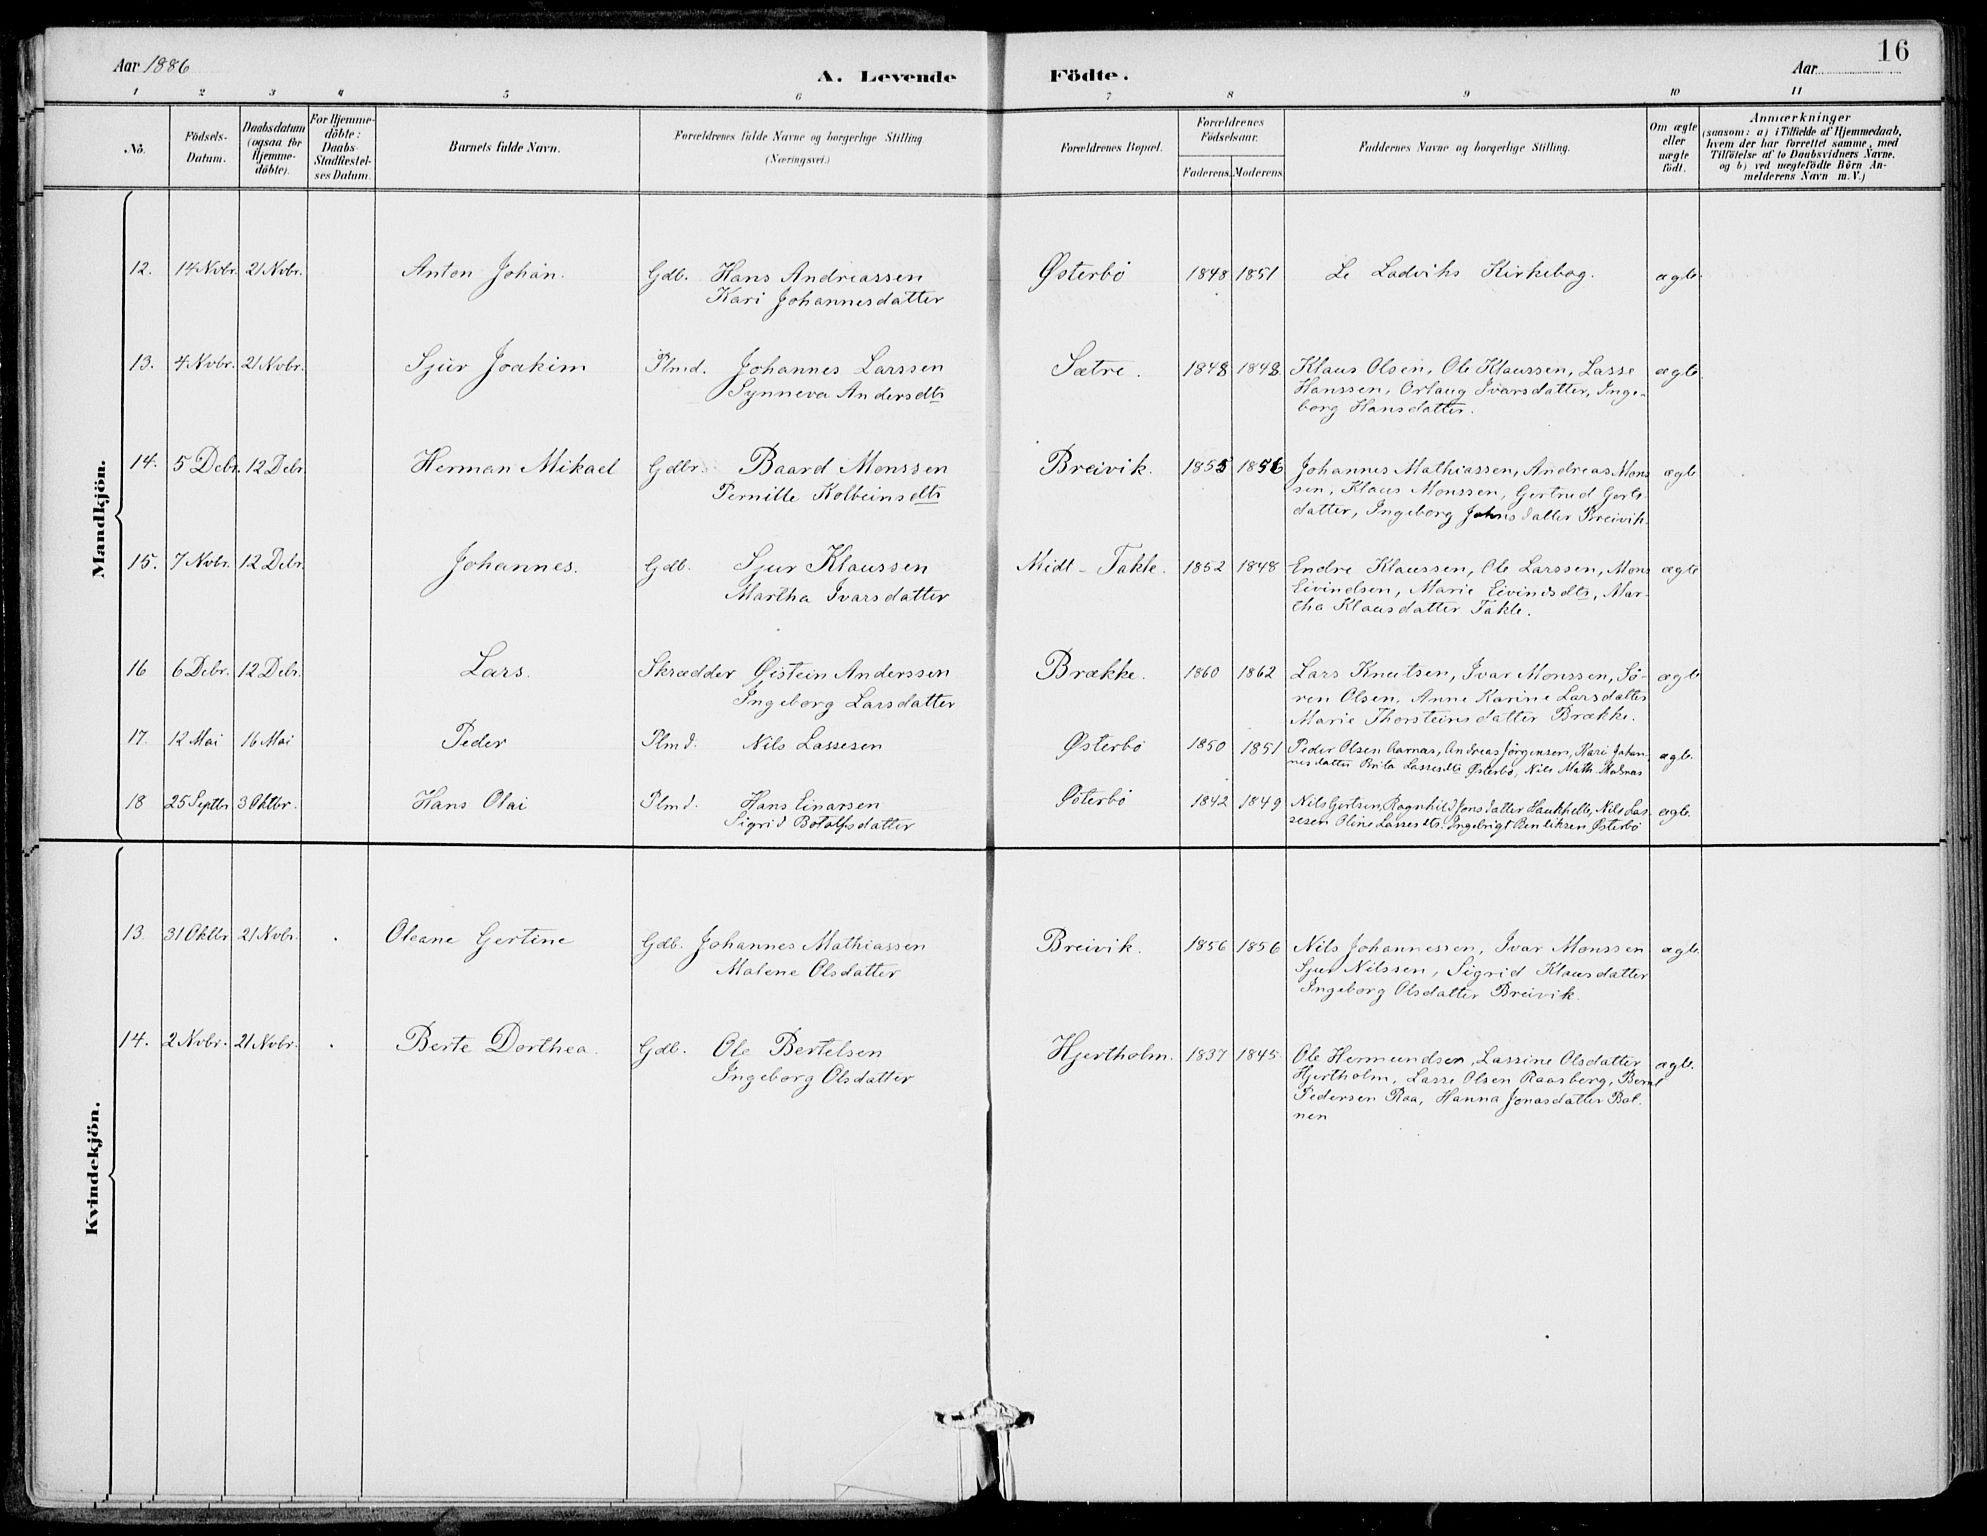 Aar 1886
A. Levende Födte.
Aar
16
1 2 3 4 5 6 7 8 9 10 11
No.
Födsels-
Datum.
Daabsdatum
(ogsaa for
Hjemme-
döbte).
For Hjemme-
döbte:
Daabs-
Stadfæstel-
ses Datum.
Barnets fulde Navn.
Forældrenes fulde Navne og borgerlige Stilling
(Næringsvei.)
Forældrenes Bopæl.
Forældrenes
Födselsaar.
Faderens. Moderens.
Faddernes Navne og borgerlige Stilling.
Om ægte
eller
uægte
födt.
Anmærkninger
(saasom: a) i Tilfælde af Hjemmedaab,
hvem der har forrettet samme, med
Tilföielse af to Daabsvidners Navne,
og b) ved uægtefödte Börn An-
melderens Navn m. V.)
Mandkjön.
12. 14 Nvbr. 21 Nvbr. Anton Johan. Gdb. Hans Andreassen Østerbö 1848 1851 Se Ladviks Kirkebog. ægte.
Kari Johannesdatter
13. 4 Nvbr. 21 Nvbr. Sjur Joakim Plmd. Johannes Larssen Sætre. 1848 1848 Klaus Olsen, Ole Klaussen, Lasse ægte.
Synneva Andersdtr Hanssen, Orlaug Ivarsdatter, Inge-
borg Hansdatter.
14. 5 Debr. 12 Debr. Herman Mikael Gdbr. Baard Monssen Breivik. 1855 1856 Johannes Mathiassen, Andreas Mons ægte
Pernille Kolbeinsdtr sen, Klaus Monssen, Gertrud Gerts
datter, Ingeborg Johnsdatter Breivik.
15. 7 Nvbr. 12 Debr. Johannes. Gdb. Sjur Klaussen Midt-Takle. 1852 1848 Endre Klaussen, Ole Larssen, Mons ægte
Martha Ivarsdatter Eivindsen, Marie Eivindsdtr, Mar-
tha Klausdatter Takle.
16 6 Debr. 12 Debr. Lars. Skrædder Øistein Anderssen Brække. 1860 1862 Lars Knutsen, Ivar Monssen, Sö- ægte
Ingeborg Larsdatter ren Olsen, Anne Karine Larsdatter
Marie Thorsteinsdatter Brække.
17. 12 Mai 16 Mai Peder Plmd. Nils Lassesen Østerbö 1850 1851 Peder Olsen Aarnas, Andreas Jørgensen, Kari Johan- ægte.
nesdatter Brita Lassesdtr Østerbö, Nils Math.
18 25 Septbr 3 Oktbr. Hans Olai Plmd. Hans Einarsen Østerbö 1842 1849 Nils Gertsen, Ragnhild Jonsdatter Haukhelle, Nils Las- ægte.
Sigrid Botolfsdatter sesen Oline Lassesdtr. Ingebrigt Benliksen Østerbö
Kvindekjön.
13. 31 Oktbr 21 Nvbr. Oleane Gertine Gdb. Johannes Mathiassen Breivik. 1856 1856 Nils Johannessen, Ivar Monssen ægte.
Malene Olsdatter Sjur Nilssen, Sigrid Klausdatter
Ingeborg Olsdatter Breivik.
14. 2 Nvbr. 21 Nvbr. Berte Dorthea. Gdb. Ole Bertelsen Hjertholm. 1837 1845 Ole Hermundsen, Lassine Olsdatter ægte.
Ingeborg Olsdatter Hjertholm, Lasse Olsen Raasberg, Bernt
Pedersen Raa, Hanna Jonasdatter Bol-
nen